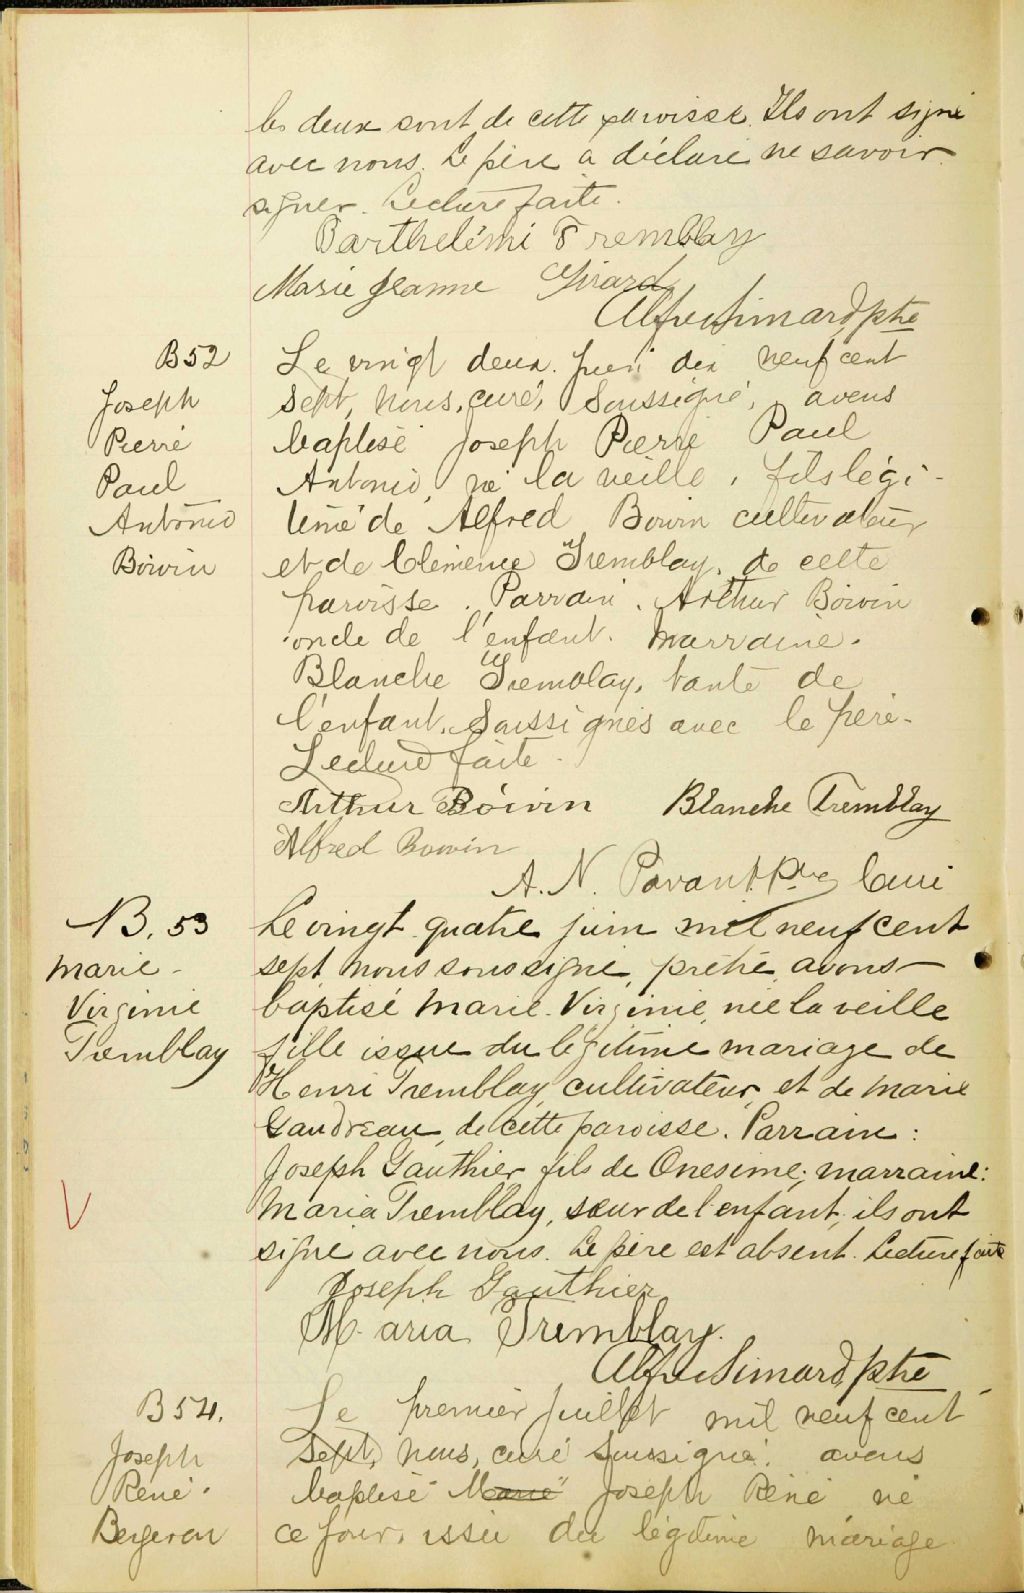 les deux sont de cette paroisse. Ils ont signé
avec nous. Le père a déclaré ne savoir
signer. Lecture faite.
Barthelémi Tremblay
Marie Jeanne Girard
Alfred Simard ptre
B52
Joseph
Pierre
Paul
Antonio
Boivin
Le vingt deux juin dix neuf cent
sept, nous, curé, soussigné, avons
baptisé Joseph Pierre Paul
Antonio, né la veille, fils légi-
time de Alfred Boivin cultivateur
et de Clémence Tremblay, de cette
paroisse. Parrain. Arthur Boivin
oncle de l'enfant. Marraine.
Blanche Tremblay, tante de
l'enfant. Soussignés avec le père.
Lecture faite.
Arthur Boivin Blanche Tremblay
Alfred Boivin
A. N. Ptre Curé
B. 53
Marie
Virginie
Tremblay
Le vingt quatre juin mil neuf cent
sept nous soussigné, prêtre, avons
baptisé Marie-Virginie, née la veille
fille issue du légitime mariage de
Henri Tremblay, cultivateur, et de Marie
Gaudreau, de cette paroisse. Parrain:
Joseph Gauthier, fils de Onesime; marraine:
Maria Tremblay, sœur de l'enfant; ils ont
signé avec nous. Le père est absent. Lecture faite
Joseph Gauthier
Maria Tremblay.
Alfred Simard, ptre
B 54.
Joseph
René.
Bergeron
Le premier juillet mil neuf cent
sept, nous, curé soussigné, avons
baptisé Marie Joseph René né
ce jour, issu du légitime mariage